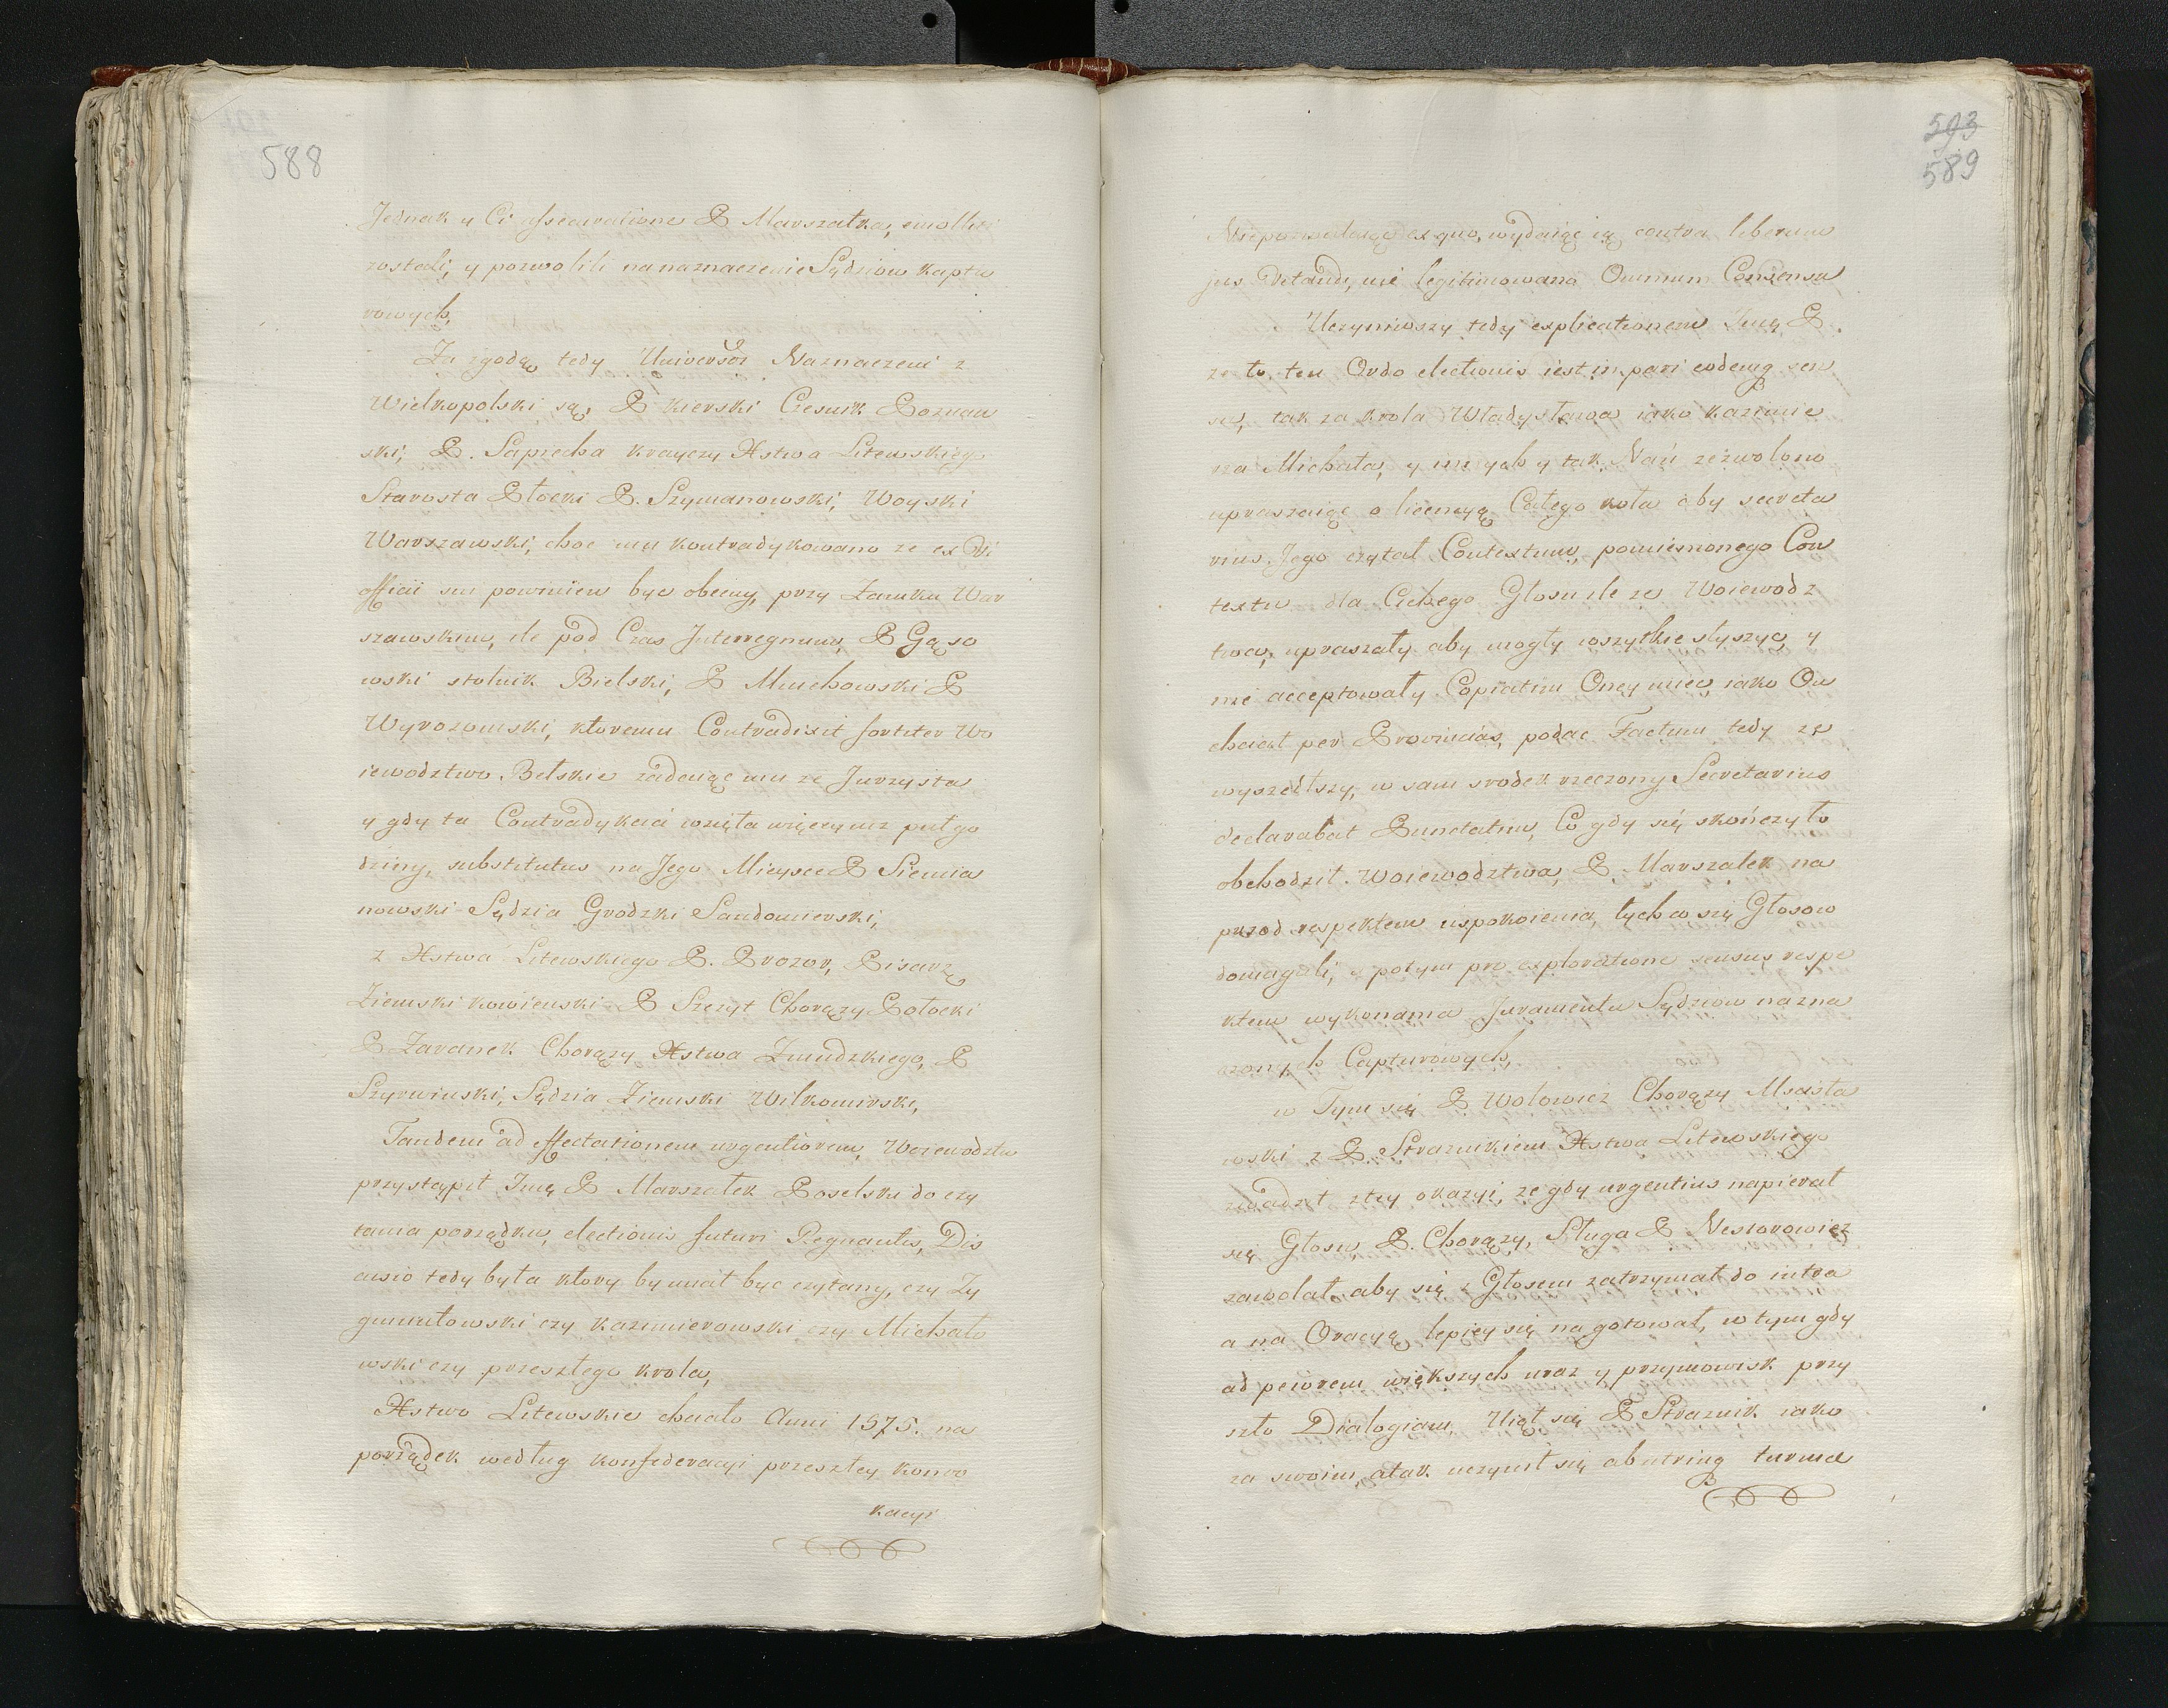 588
Jednak y Ci assecuratione P Marszałka, emolliti
zostali, y pozwolili na naznaczenie Sędziow Kaptu
rowych,
Za zgodą tedy Universor Naznaczeni z
Wielkopolski są, P Kierski Czesnik Poznan
ski, P. Sapiecha krayczy Xstwa Litewskieg
Starosta Płocki P. Szymanowski, Woyski
Warszawski, choc mu kontradykowano ze ex Vi
officii sui powinien byc obecny, przy Zamku War
szawskim, ile pod Czas Interregnum, P Gąso
wski stolnik Bielski, P Muchowski P
Wyrozomski, ktoremu Contradixit fortiter Wo
iewodztwo Bełskie zadaiąc mu ze Jurzysta
y gdy ta Contradykcia wzięta więcey niz puł go
dziny, substitutus na Jego Mieysce P Siemia
nowski Sędzia Grodzki Sandomierski,
z Xstwa Litewskiego P. Prozor, Pisarz
Ziemski kowienski P Szczyt Chorązy Połocki
P Zaranek Chorązy Xstwa Zmudzkiego, P
Szyrwinski, Sędzia Ziemski Wilkomirski,
Tandem ad effectationem urgentiorem, Woiewodztw
przystąpił Jmę P Marszałek Poselski do czy
tania porządku, electionis futuri Regnantis, Dis
cusio tedy była ktory by miał byc czytany, czy Zy
gmuntowski czy Kazimierowski czy Michało
wski czy przeszłego krola,
Xstwo Litewskie chciało Anni 1575. na
porządek według konfederacyi przeszłey konwo
kacyi
593
589
Niepozwalaiąc ex quo, wydaiąc ią contra liberum
jus Vetandi, nie legitimowana Omnium Consensu
Uczyniwszy tedy explicationem Jmę P.
ze to ten Ordo electionis iest in pari eodemq sen
su, tak za krola Władysława iako Kazimie
rza Michała, y innych y tak Nań zezwolono
upraszaiąc o licencyą Całego koła aby secreta
rius Jego czytał Contextum, pomienionego Con
textu dla Cichego Głosu ile ze Woiewodz
twa, upraszały aby mogły wszytkie słyszyc, y
nie acceptowały Copiatim Oney miec, iako On
chciał per Provincias, podac Factum tedy ze
wyszedłszy, w sam srodek rzeczony Secretarius
declarabat Punctatim, Co gdy się skończyło
obchodził Woiewodztwa, P. Marszałek na
przod respektem uspokoienia, tych co się Głosow
domagali, a potym pro exploratione sensus respe
ktem wykonania Juramentu Sędziow nazna
czonych Capturowych,
w Tym się P Wołowicz Chorązy Msćisła
wski z P. Straznikiem Xstwa Litewskiego
zwadził ztey okazyi, ze gdy urgentius napierał
się Głosu, P. Chorązy, Sługa P Nestorowicz
zawołał aby się z Głosem zatrzymał do iutra
a na Oracyą lepiey się nagotował, w tym gdy
ad peiorem większych uraz y przymowisk przy
szło Dialogiam, Uiął się P Straznik iako
za swoim, a tak uczynił się ab utrinq turma